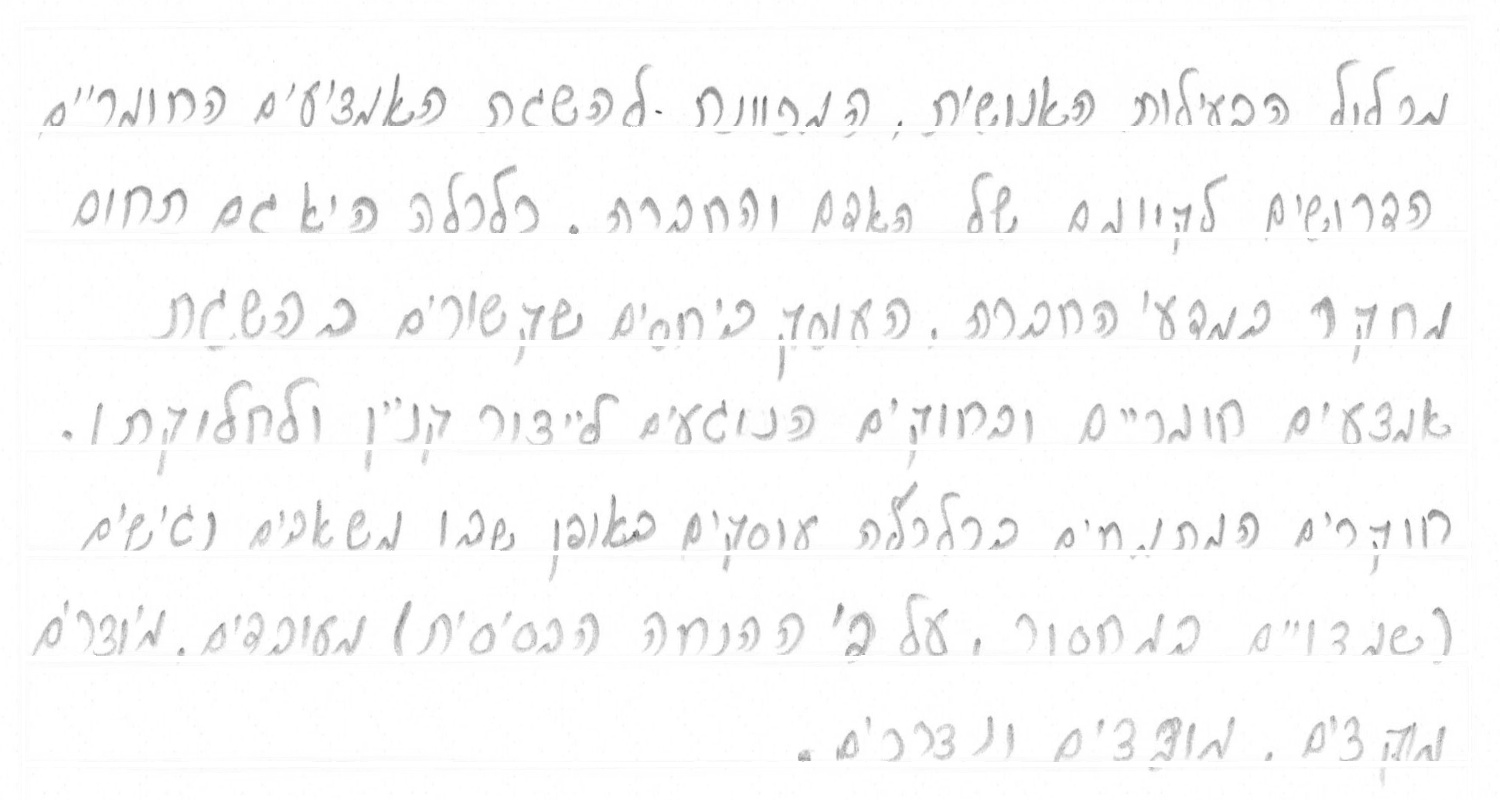 מכלול הפעילות האנושית, המכוונת להשגת האמצעים החומריים
הדרושים לקיומם של האדם והחברה. כלכלה היא גם תחום
מחקר במדעי החברה, העוסק ביחסים שקשורים בהשגת
אמצעים חומריים ובחוקים הנוגעים לייצור קניין ולחלוקתו.
חוקרים המתמחים בכלכלה עוסקים באופן שבו משאבים נגישים
(שמצויים במחסור, על פי ההנחה הבסיסית) מעובדים, מיוצרים
מוקצים, מופצים ונצרכים.